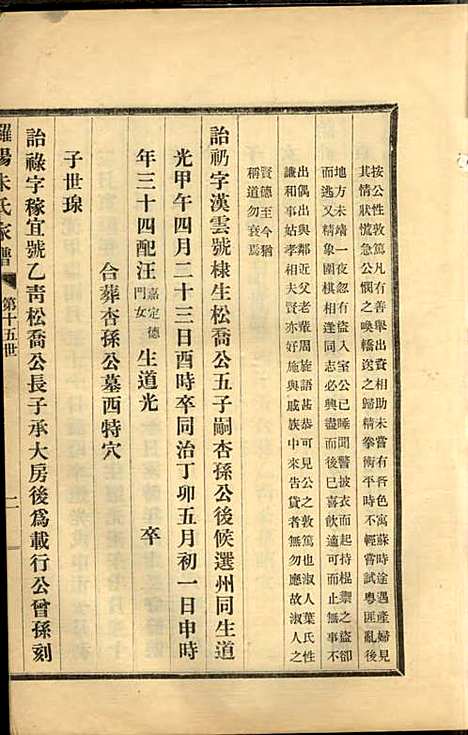 按公性敦篤凡有善舉出貲相助未嘗有吝色寓蘇時途遇產婦見
其情狀慌急公憫之喚轎送之歸精拳術平時不輕嘗試粤匪亂後
地方未靖一夜忽有盜入室公已睡聞警披衣而起持棍禦之盜卻
而逃又精象圍棋相逢同志必興盡而後已喜飲適可而止無事不
出偶出與鄰近父老輩周旋語甚恭可見公之敦篤也淑人葉氏性
謙和事姑孝相夫賢亦好施與戚族中來告貸者無勿應故淑人之
賢德至今猶
稱道勿衰焉
詒礽字漢雲號棣生松喬公五子嗣杏孫公後候選州同生道
光甲午四月二十三日酉時卒同治丁卯五月初一日申時
年三十四配汪嘉定德門女生道光 卒
合葬杏孫公墓西特穴
子世琜
詒祿字稼宜號乙靑松喬公長子承大房後爲載行公曾孫刻
羅陽朱氏家譜 第十五世 二